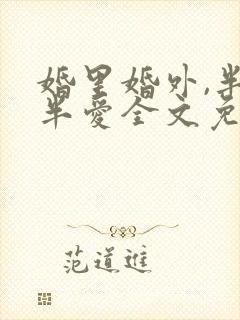 婚里婚外,半
半爱全文免
范道進